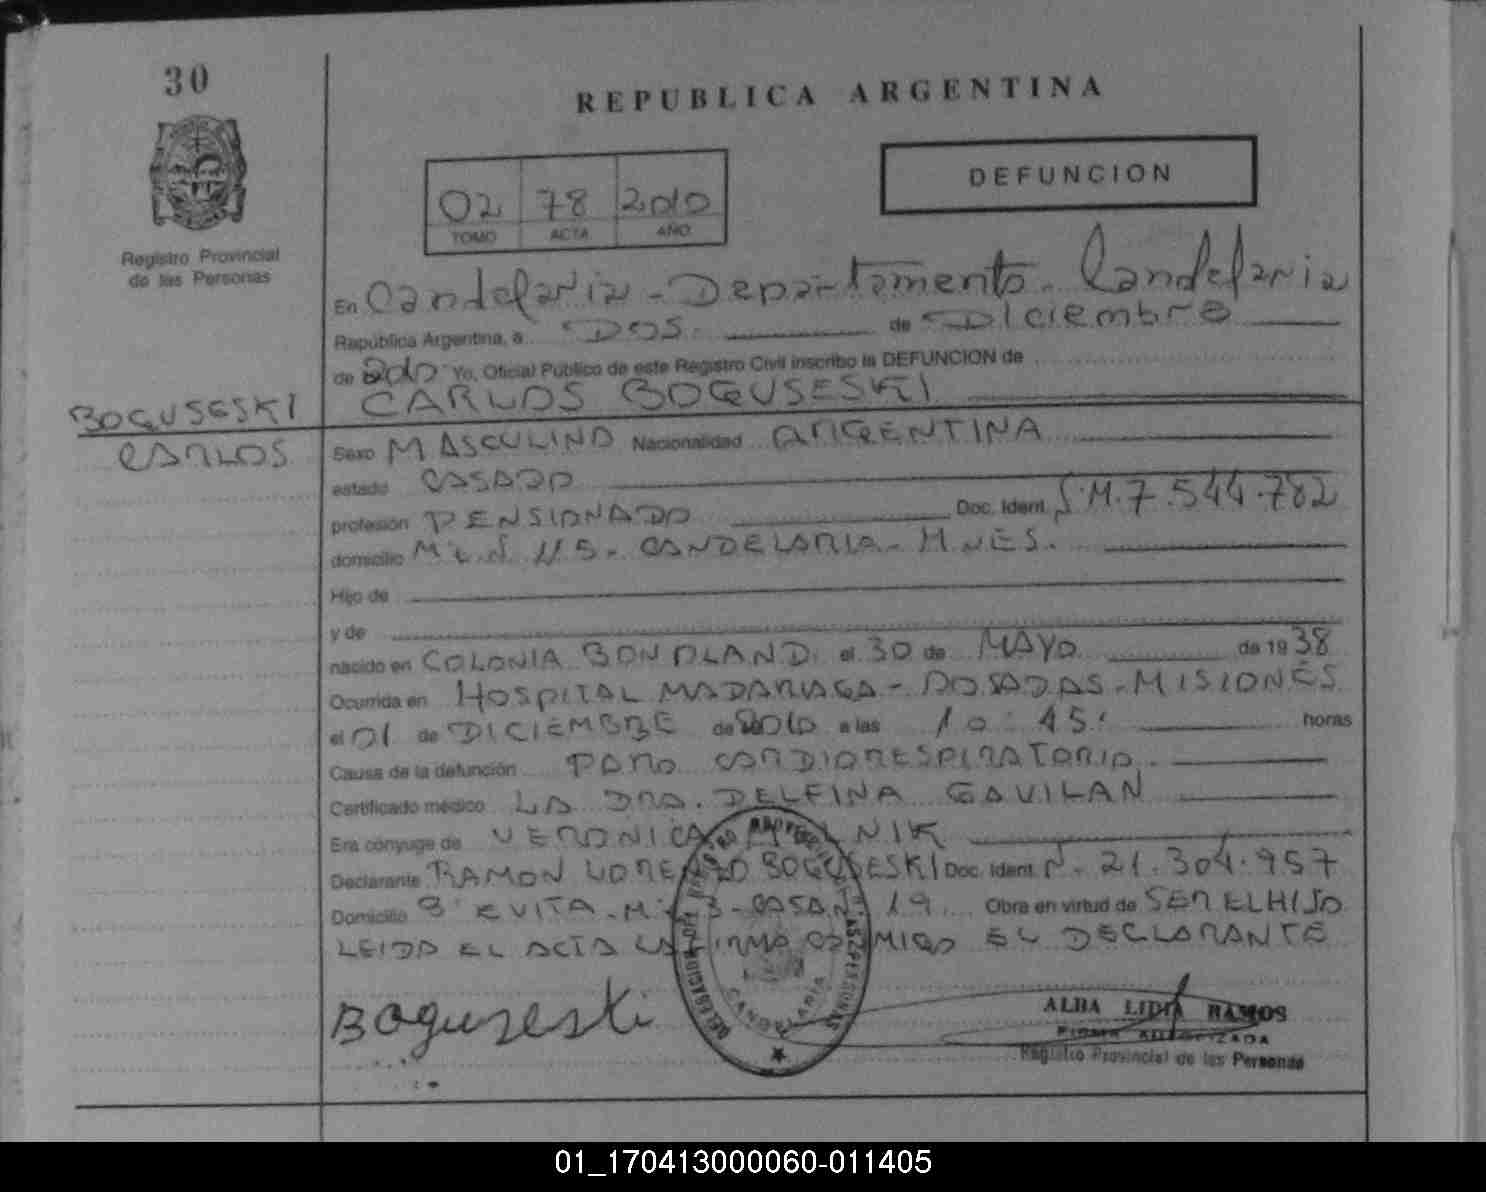 30
REPUBLICA ARGENTINA
DEFUNCION
02 78 2010
TOMO ACTA AÑO
Registro Provincial
de las Personas
En Candelaria - Departamento - Candelaria
República Argentina, a DOS de Diciembre
de 2010 Yo, Oficial Público de este Registro Civil inscribo la DEFUNCION de
BOGUSESKI CARLOS BOGUSESKI
CARLOS
Sexo MASCULINO Nacionalidad ARGENTINA
estado CASADO
profesión PENSIONADO Doc. Ident. 7.544.782
domicilio CANDELARIA - MNES.
Hijo de
y de
nacido en COLONIA BONPLAND el 30 de MAYO de 1938
Ocurrida en HOSPITAL MADARIAGA - POSADAS - MISIONES
el 01 de DICIEMBRE de 2010 a las 10:45. horas
Causa de la defunción PARO CARDIORESPIRATORIO
Certificado médico LA DRA. DELFINA GAVILAN
Era cónyuge de VERONICA
Declarante RAMON LORENZO BOGUSESKI Doc. Ident. N. 21.304.957
Domicilio Bº EVITA - CASA Nº 19 Obra en virtud de SER EL HIJO
LEIDA EL ACTA LA FIRMA CONMIGO EL DECLARANTE
Boguseski
DELEGACION DEL REGISTRO PROVINCIAL DE LAS PERSONAS
CANDELARIA
ALBA LIDIA RAMOS
FIRMA AUTORIZADA
Registro Provincial de las Personas
01_170413000060-011405